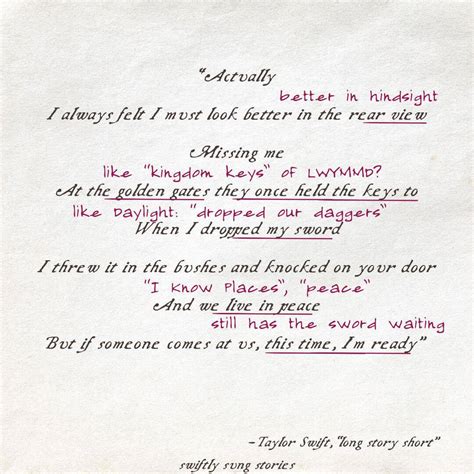 “Actually
better in hindsight
I always felt I must look better in the rear view
Missing me
like "kingdom keys" of LWYMMD?
At the golden gates they once held the keys to
like Daylight: "dropped our daggers"
When I dropped my sword
I threw it in the bushes and knocked on your door
"I Know Places", "peace"
And we live in peace
still has the sword waiting
But if someone comes at us, this time, I'm ready”
-Taylor Swift, “long story short”
swiftly sung stories